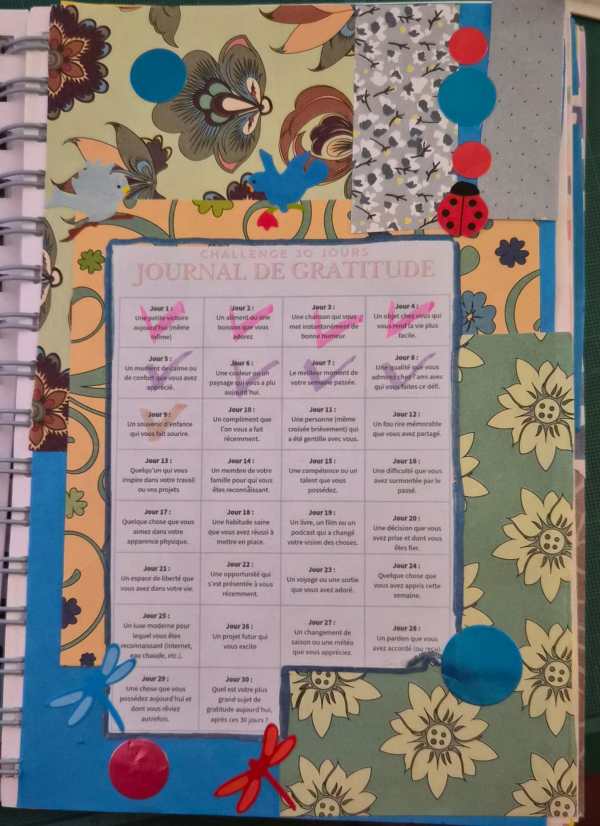 CHALLENGE 30 JOURS
JOURNAL DE GRATITUDE
Jour 1 :
Une petite victoire
aujourd'hui (même
infime)
Jour 2 :
Un aliment ou une
boisson que vous
adorez
Jour 3 :
Une chanson qui vous
met instantanément de
bonne humeur
Jour 4 :
Un objet chez vous qui
vous rend la vie plus
facile.
Jour 5 :
Un moment de calme ou
de confort que vous avez
apprécié.
Jour 6 :
Une couleur ou un
paysage qui vous a plu
aujourd'hui.
Jour 7 :
Le meilleur moment de
votre semaine passée.
Jour 8 :
Une qualité que vous
admirez chez l'ami avec
qui vous faites ce défi.
Jour 9 :
Un souvenir d'enfance
qui vous fait sourire.
Jour 10 :
Un compliment que
l'on vous a fait
récemment.
Jour 11 :
Une personne (même
croisée brièvement) qui
a été gentille avec vous.
Jour 12 :
Un fou rire mémorable
que vous avez partagé.
Jour 13 :
Quelqu'un qui vous
inspire dans votre travail
ou vos projets
Jour 14 :
Un membre de votre
famille pour qui vous
êtes reconnaissant.
Jour 15 :
Une compétence ou un
talent que vous
possédez.
Jour 16 :
Une difficulté que vous
avez surmontée par le
passé.
Jour 17 :
Quelque chose que vous
aimez dans votre
apparence physique.
Jour 18 :
Une habitude saine
que vous avez réussi à
mettre en place.
Jour 19 :
Un livre, un film ou un
podcast qui a changé
votre vision des choses.
Jour 20 :
Une décision que vous
avez prise et dont vous
êtes fier.
Jour 21 :
Un espace de liberté que
vous avez dans votre vie.
Jour 22 :
Une opportunité qui
s'est présentée à vous
récemment.
Jour 23 :
Un voyage ou une sortie
que vous avez adoré.
Jour 24 :
Quelque chose que
vous avez appris cette
semaine.
Jour 25 :
Un luxe moderne pour
lequel vous êtes
reconnaissant (internet,
eau chaude, etc.).
Jour 26 :
Un projet futur qui
vous excite
Jour 27 :
Un changement de
saison ou une météo
que vous appréciez.
Jour 28 :
Un pardon que vous
avez accordé (ou reçu)
Jour 29 :
Une chose que vous
possédez aujourd'hui et
dont vous rêviez
autrefois.
Jour 30 :
Quel est votre plus
grand sujet de
gratitude aujourd'hui,
après ces 30 jours ?